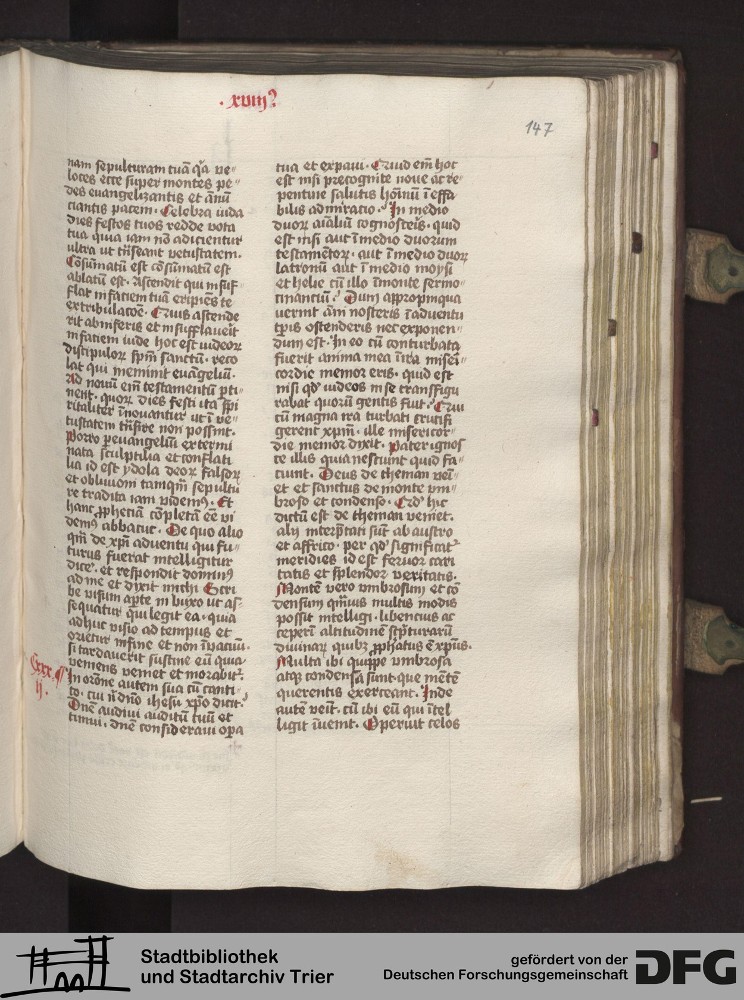 · xviij ꝰ
147
nam sepulturam tuā q̄a ve⸗
loces ecce super montes pe⸗
des euangelizantis et ānū
ciantis pacem. Celebra iuda
dies festos tuos redde vota
tua quia iam nō adicientur
ultra ut trāseant in vetustatem.
Cōsumatū est cōsumatū est
ablatū est. Ascendit qui insuf⸗
flat in faciem tuā eripiens te
ex tribulacōe. Cuius ascende
rit ab inferis et insufflauerit
in faciem iude hoc est iudeorū
discipulorū spm̄ sanctū. reco
lat qui meminit euangeliū.
Ad nouū em̄ testamentū pti⸗
nent. quorū dies festi ita spi
ritaliter īnouantur ut ī ve⸗
tustatem trāsire non possint.
Porro per euangeliū extermi
nata sculptilia et conflati
lia id est ydola deorū falsorū
et obliuioni tamqm̄ sepultu
re tradita iam videmꝰ. Et
hanc ꝓphetiā cōpletā eē vi
demꝰ abbacuc. De quo alio
qm̄ de xp̄i aduentu qui fu⸗
turus fuerat intelligitur
dicē. et respondit dominꝰ
ad me et dixit michi Scri
be visum apte in buxo ut as⸗
sequatur qui legit ea. quia
adhuc visio ad tempus et
orietur in fine et non in vacuū.
si tardauerit sustine eū quia
veniens veniet et morabitᵣ
Cxxx ¶
ij.
In orōne autem sua cū canti⸗
co. cui n̄ dn̄o ihesu xp̄o dicit.
Dn̄e audiui auditū tuū et
timui. dn̄e consideraui oꝑa
tua et expaui. Quid em̄ hoc
est nisi precognite noue ac re⸗
pentine salutis hōinū ī effa
bilis admiratio. In medio
duorū aīaliū cognosceris. quid
est nisi aut ī medio duorum
testamētorū. aut ī medio duorū
latronū aut ī medio moysi
et helie cū illo ī monte sermo⸗
cinanciū. Dum appropinqua
uerint ānī nosceris ī aduentu
tp̄is ostenderis nec exponen⸗
dum est. In eo cū conturbata
fuerit anima mea ī ira misēi⸗
cordie memor eris. quid est
nisi qd̄ iudeos in se transfigu
rabat quorū gentis fuit. Qui
cū magna ira turbati crucifi
gerent xpm̄. ille misericor⸗
die memor dixit. Pater ignos
ce illis quia nesciunt quid fa⸗
ciunt. Deus de theman veī⸗
et et sanctus de monte vm⸗
broso et condenso. Qd̄ hic
dictū est de theman veniet.
alij interp̄tati sūt ab austro
et affrico. per qd̄ significatᵣ
meridies id est feruor cari
tatis et splendor veritatis.
Montē vero vmbrosum et cō
densum qm̄uis multis modis
possit intelligi. libencius ac
ceperī altitudinē sc̄pturarū
diuinarū quibꝫ ꝓphatus ē xp̄us.
Multa ibi quippe vmbrosa
atqꝫ condensa sunt que mētē
querentis exerceant. Inde
autē veīt. cū ibi eū qui ītel
ligit īuenit. Operuit celos
Stadtbibliothek
und Stadtarchiv Trier
gefördert von der
Deutschen Forschungsgemeinschaft
DFG